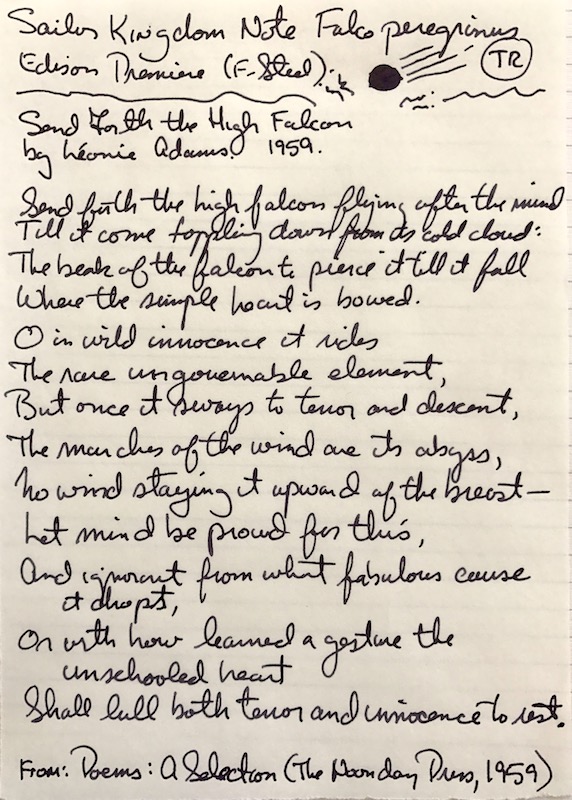 Sailor Kingdom Note Falco peregrinus
Edison Premiere (F-Steel).
TR
Send Forth the High Falcon
by Léonie Adams. 1959.
Send forth the high falcon flying after the mind
Till it come toppling down from its cold cloud:
The beak of the falcon to pierce it till it fall
Where the simple heart is bowed.
O in wild innocence it rides
The rare ungovernable element,
But once it sways to terror and descent,
The marches of the wind are its abyss,
No wind staying it upward of the breast—
Let mind be proud for this,
And ignorant from what fabulous cause
it dropt,
Or with how learned a gesture the
unschooled heart
Shall lull both terror and innocence to rest.
From: Poems: A Selection (The Noonday Press, 1959)